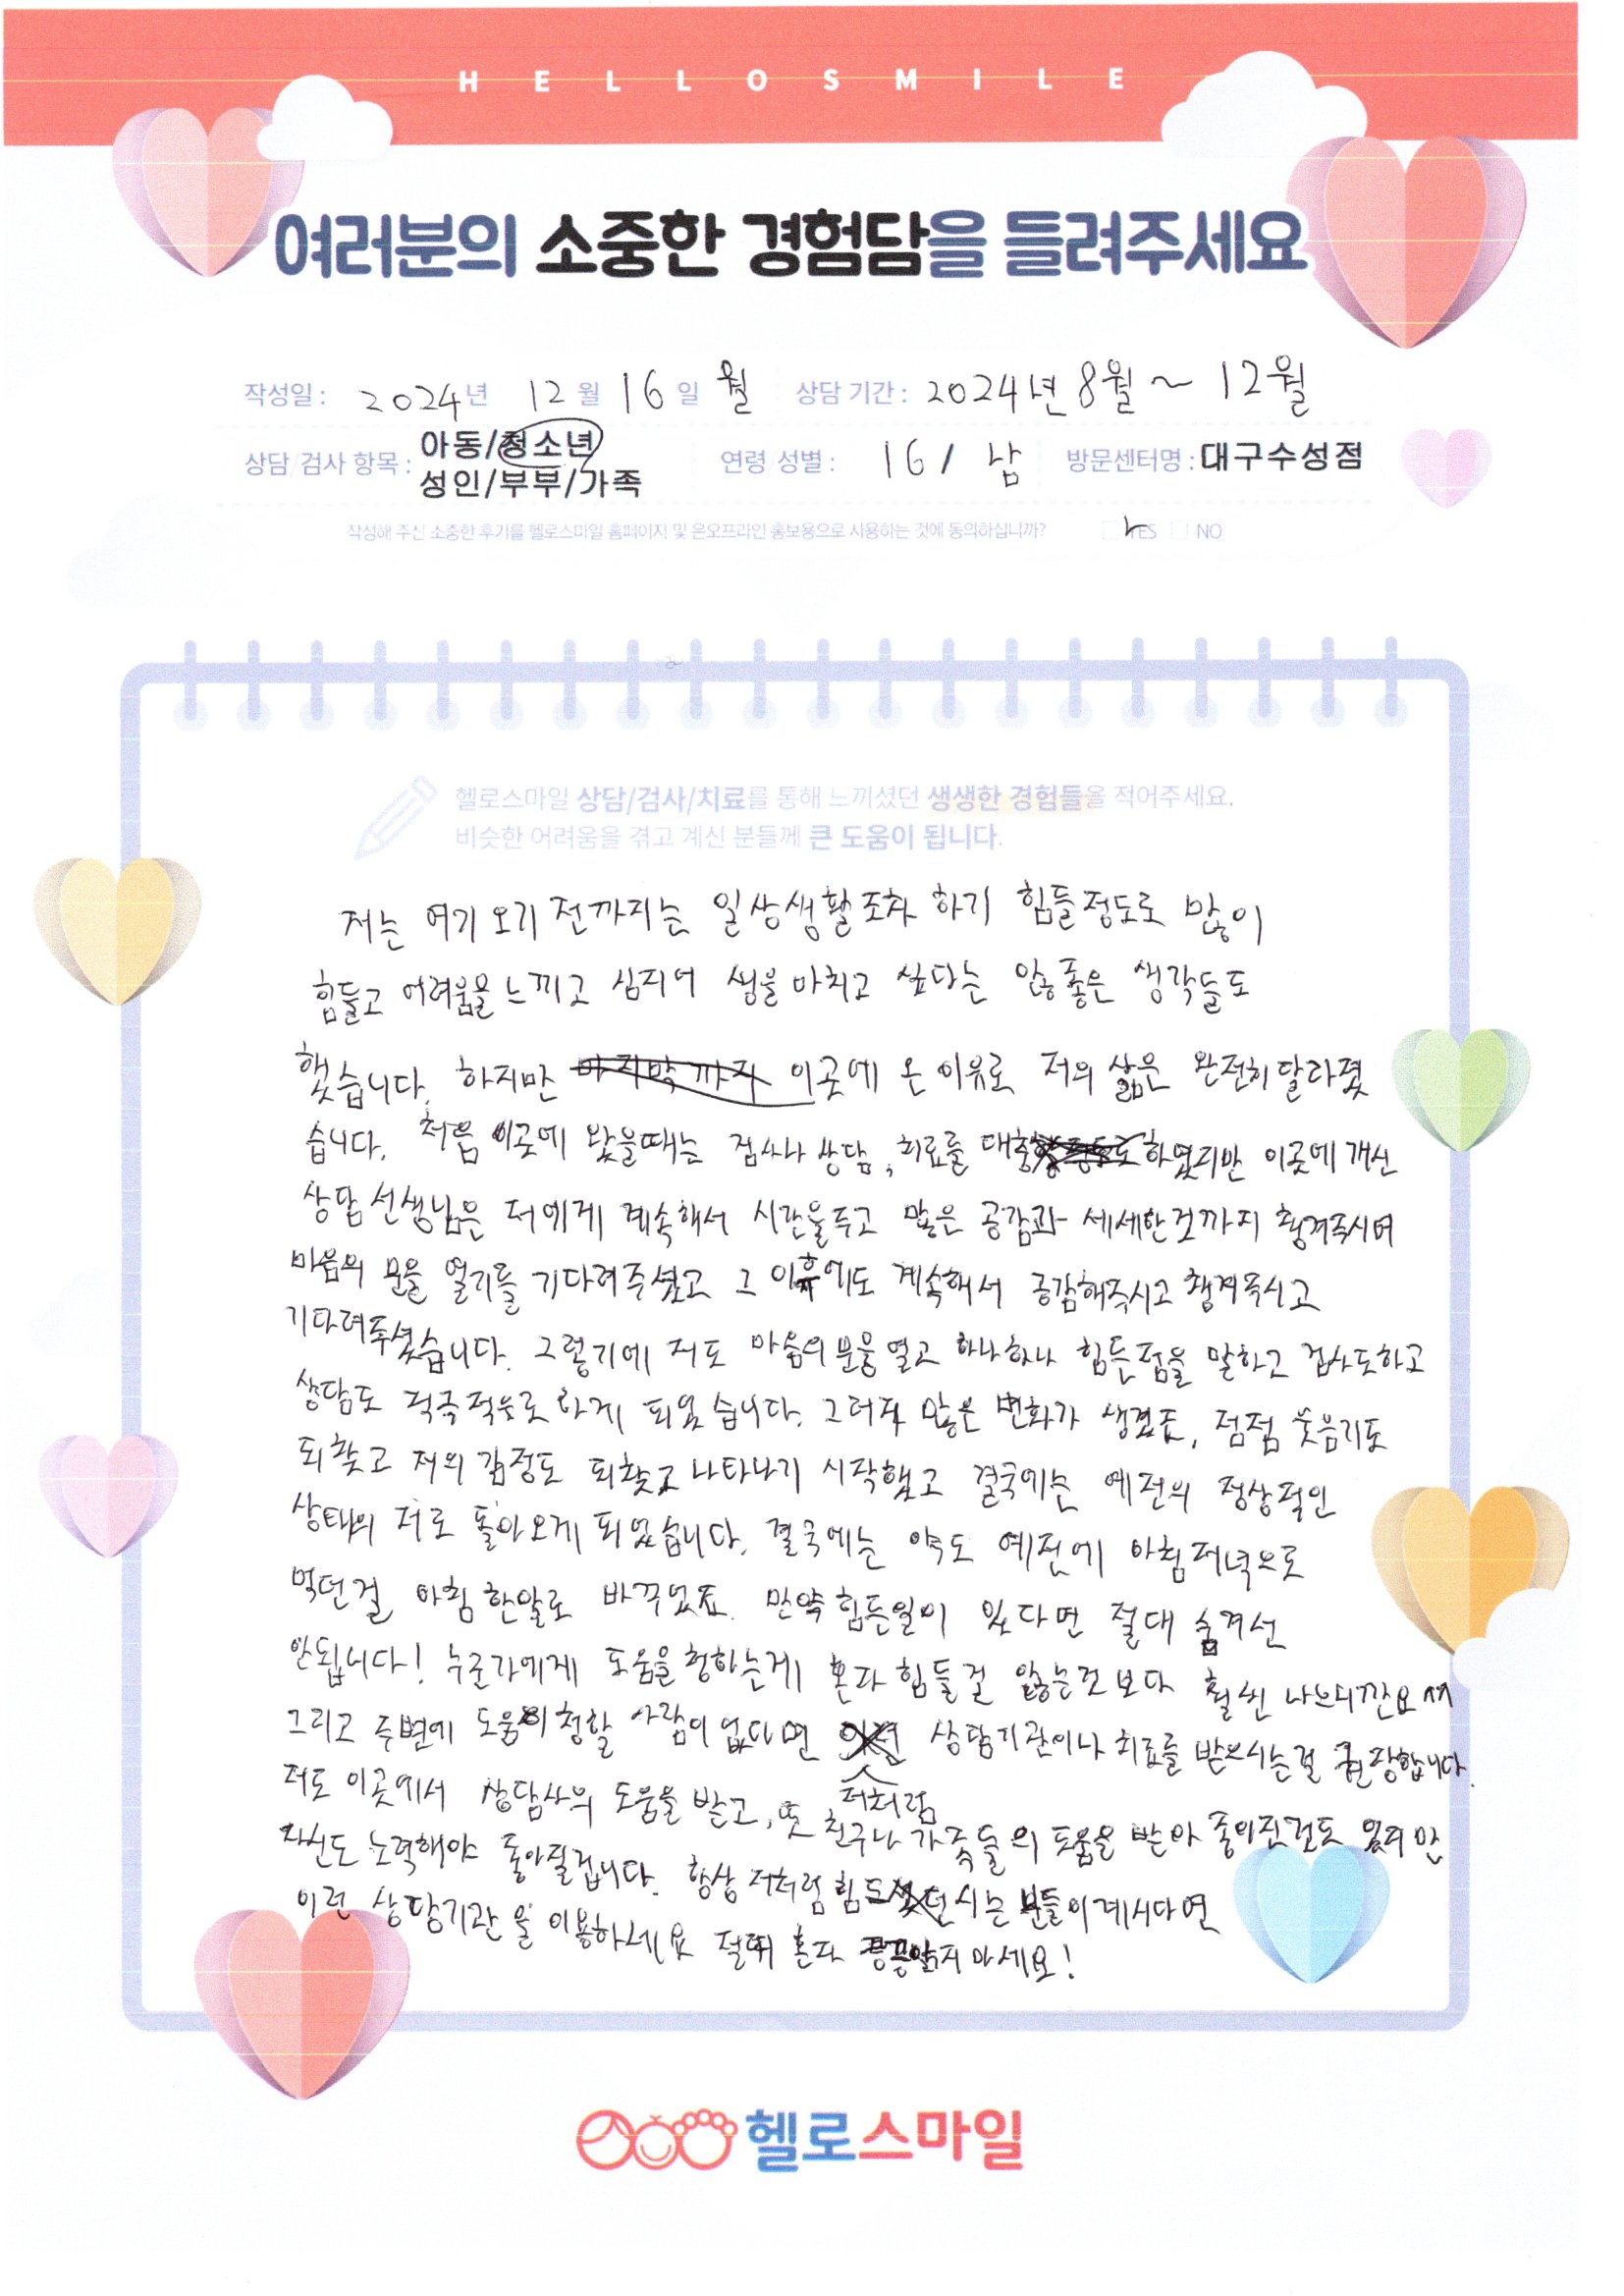 HELLOSMILE
여러분의 소중한 경험담을 들려주세요
작성일 : 2024년 12월 16일 월 상담 기간 : 2024년 8월 ~ 12월
상담/검사 항목 : 아동/청소년 성인/부부/가족 연령/성별 : 16/ 남 방문센터명 : 대구수성점
작성해 주신 소중한 후기를 헬로스마일 홈페이지 및 온오프라인 홍보용으로 사용하는 것에 동의하십니까? YES NO
헬로스마일 상담/검사/치료를 통해 느끼셨던 생생한 경험들을 적어주세요.
비슷한 어려움을 겪고 계신 분들께 큰 도움이 됩니다.
저는 여기 오기 전까지는 일상생활조차 하기 힘들정도로 많이
힘들고 어려움을 느끼고 심지어 생을 마치고 싶다는 안좋은 생각들도
했습니다. 하지만 이곳에 온 이유로 저의 삶은 완전히 달라졌
습니다. 처음 이곳에 왔을때는 검사나 상담, 치료를 대충 하였지만 이곳에 계신
상담선생님은 저에게 계속해서 시간을 두고 많은 공감과 세세한것까지 챙겨주시며
마음의 문을 열기를 기다려주셨고 그 이후에도 계속해서 공감해주시고 챙겨주시고
기다려주셨습니다. 그렇기에 저도 마음의 문을 열고 하나하나 힘든점을 말하고 검사도하고
상담도 적극적으로 하게 되었습니다. 그러자 많은 변화가 생겼죠, 점점 웃음기도
되찾고 저의 감정도 되찾고 나타나기 시작했고 결국에는 예전의 정상적인
상태의 저로 돌아오게 되었습니다. 결국에는 약도 예전에 아침저녁으로
먹던걸 아침 한알로 바꾸었죠. 만약 힘든일이 있다면 절대 숨겨선
안됩니다! 누군가에게 도움을 청하는게 혼자 힘들걸 앓는것보다 훨씬 나으니깐요^^
그리고 주변에 도움이 청할 사람이 없다면 저처럼 상담기관이나 치료를 받으시는걸 권장합니다.
저도 이곳에서 상담사의 도움을 받고, 또 친구나 가족들의 도움을 받아 좋아진것도 있지만
자신도 노력해야 좋아질겁니다. 항상 저처럼 힘드시는 분들이 계시다면
이런 상담기관을 이용하세요 절대 혼자 끙끙앓지 마세요!
헬로스마일